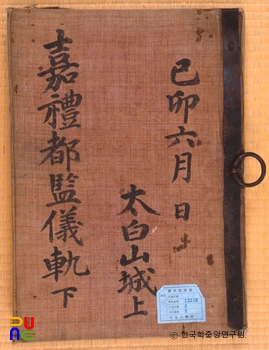 己卯六月 日
太白山城上
嘉禮都監儀軌 下
ⓒ 한국학중앙연구원